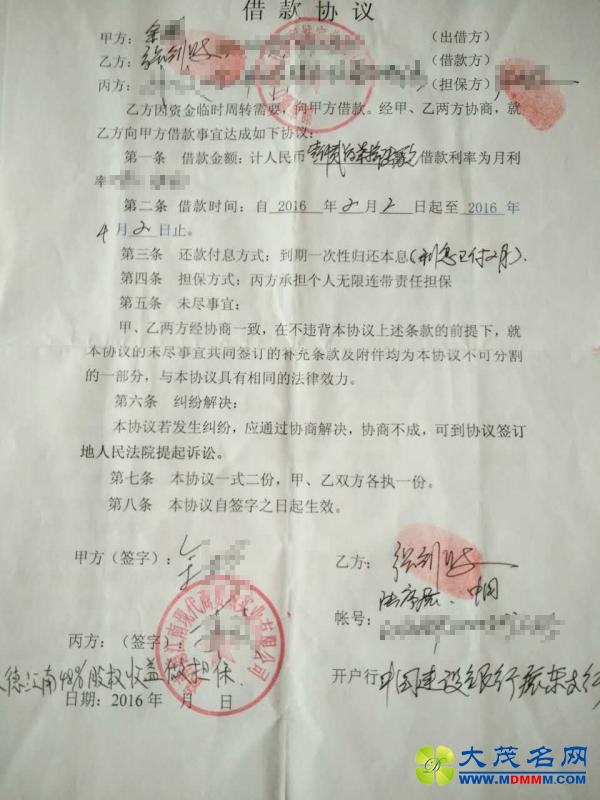 借款协议
甲方：余 （出借方）
乙方：张剑 （借款方）
丙方： （担保方）
乙方因资金临时周转需要，向甲方借款。经甲、乙两方协商，就
乙方向甲方借款事宜达成如下协议：
第一条 借款金额：计人民币 借款利率为月利
率
第二条 借款时间：自 2016 年2月2日起至 2016 年
4月2日止。
第三条 还款付息方式：到期一次性归还本息（利息已付2月）.
第四条 担保方式：丙方承担个人无限连带责任担保
第五条 未尽事宜：
甲、乙两方经协商一致，在不违背本协议上述条款的前提下，就
本协议的未尽事宜共同签订的补充条款及附件均为本协议不可分割
的一部分，与本协议具有相同的法律效力。
第六条 纠纷解决：
本协议若发生纠纷，应通过协商解决，协商不成，可到协议签订
地人民法院提起诉讼。
第七条 本协议一式二份，甲、乙双方各执一份。
第八条 本协议自签字之日起生效。
甲方（签字）： 乙方：张剑
帐号：
丙方：（签字）：
德江南48%股权收益做担保 开户行 中国建设银行振东支行
日期：2016年 月 日
江南现代商 实业有限公司
大茂名网
www.MDMMM.com